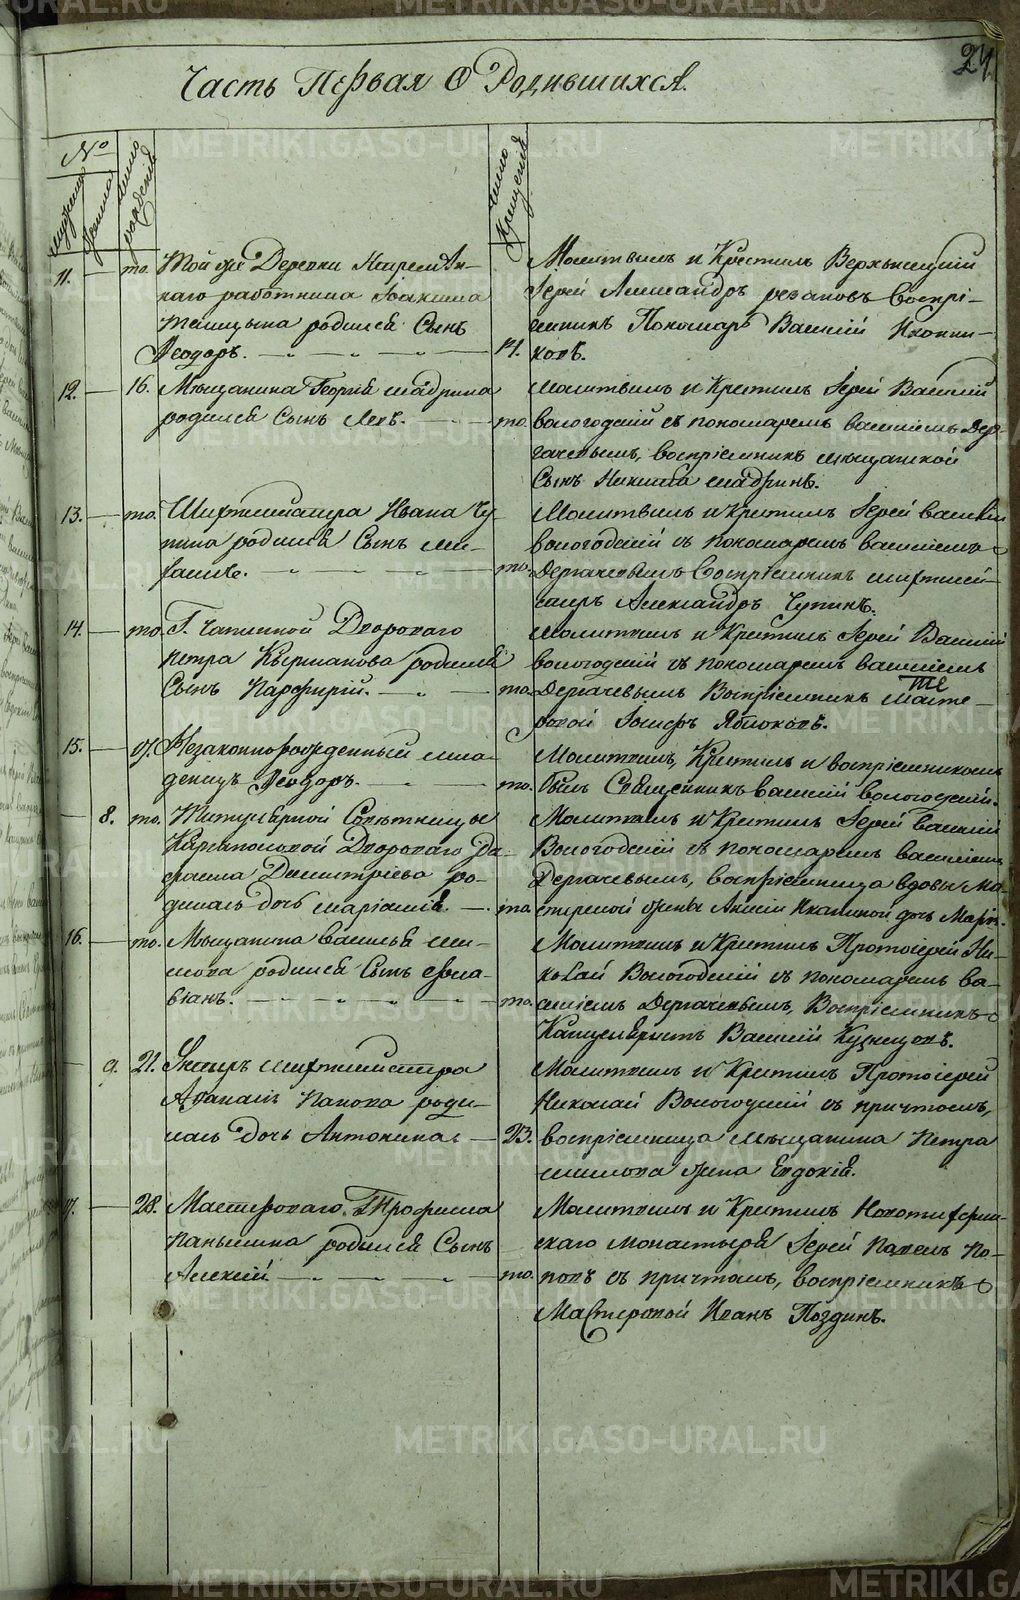 24
Часть Первая О Родившихся.
№
мужеска
женска
число рождения
число крещения
11. — то. Той же Деревни
каго работника Іоакима
родился Сынъ
Ѳеодоръ. — 14.
Молитвилъ и Крестилъ
Іерей Александръ воспрі-
емникъ Пономарь Василій Иконни-
ковъ.
12. — 16. Мѣщанина Георгія Шадрина
родился Сынъ Левъ. — то.
Молитвилъ и Крестилъ Іерей Василій
вологодскій съ пономаремъ василіемъ Дер-
гачевымъ, воспріемникъ мѣщанской
Сынъ Никита шадринъ.
13. — то. Шихтмейстера Ивана Чу-
пина родился Сынъ ми-
хаилъ. — то.
Молитвилъ и крестилъ Іерей василій
вологодскій съ пономаремъ василіемъ
Дергачевымъ Воспріемникъ шихтмей-
стеръ Александръ Чупинъ.
14. — то. Г. Дворового
петра родился
Сынъ Парфирій. — то.
Молитвилъ и Крестилъ Іерей Василій
вологодскій съ пономаремъ василіемъ
Дергачевымъ Воспріемникъ масте-
ровой Іосифъ Яблоковъ.
15. — 17. Незаконнорожденный мла-
денецъ Ѳеодоръ. — то.
Молитвилъ, Крестилъ и воспріемникомъ
былъ Священникъ василій вологодскій.
8. то. Титулярной Совѣтницы
Дворового Ге-
расима Димитріева ро-
дилась дочь маріамія. — то.
Молитвилъ и Крестилъ Іерей василій
Вологодскій съ пономаремъ василіемъ
Дергачевымъ, воспріемница вдовы ма-
стерской жены дочь Марія.
16. — то. Мѣщанина василья ши-
лова родился Сынъ фла-
віанъ. — то.
Молитвилъ и Крестилъ Протоіерей Ни-
колай Вологодскій съ пономаремъ ва-
силіемъ Дергачевымъ, Воспріемникъ
Канцеляристъ Василій Кузнецовъ.
9. 21. шихтмейстера
Аѳанасія Попова роди-
лась дочь Антонина — 23.
Молитвилъ и Крестилъ Протоіерей
Николай Вологодскій съ причтомъ,
воспріемница мѣщанина Петра
шилова жена Евдокія.
17. — 28. Мастероваго Трофима
Паньшина родился Сынъ
Алексій — то.
Молитвилъ и Крестилъ Новотихвин-
скаго монастыря Іерей Павелъ По-
повъ съ причтомъ, воспріемникъ
Мастеровой Иванъ Поздинъ.
METRIKI.GASO-URAL.RU